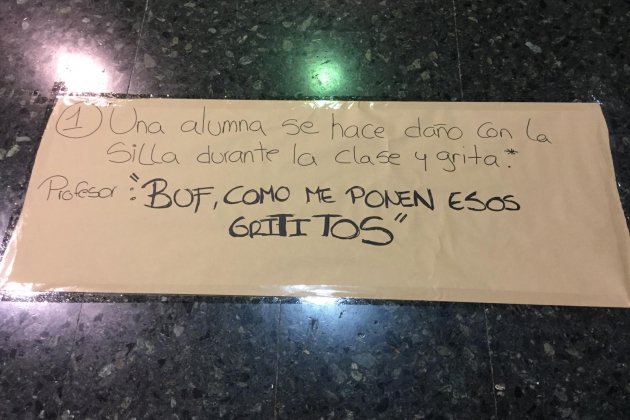 ① Una alumna se hace daño con la
silla durante la clase y grita.*
Profesor: "BUF, COMO ME PONEN ESOS
GRITITOS"